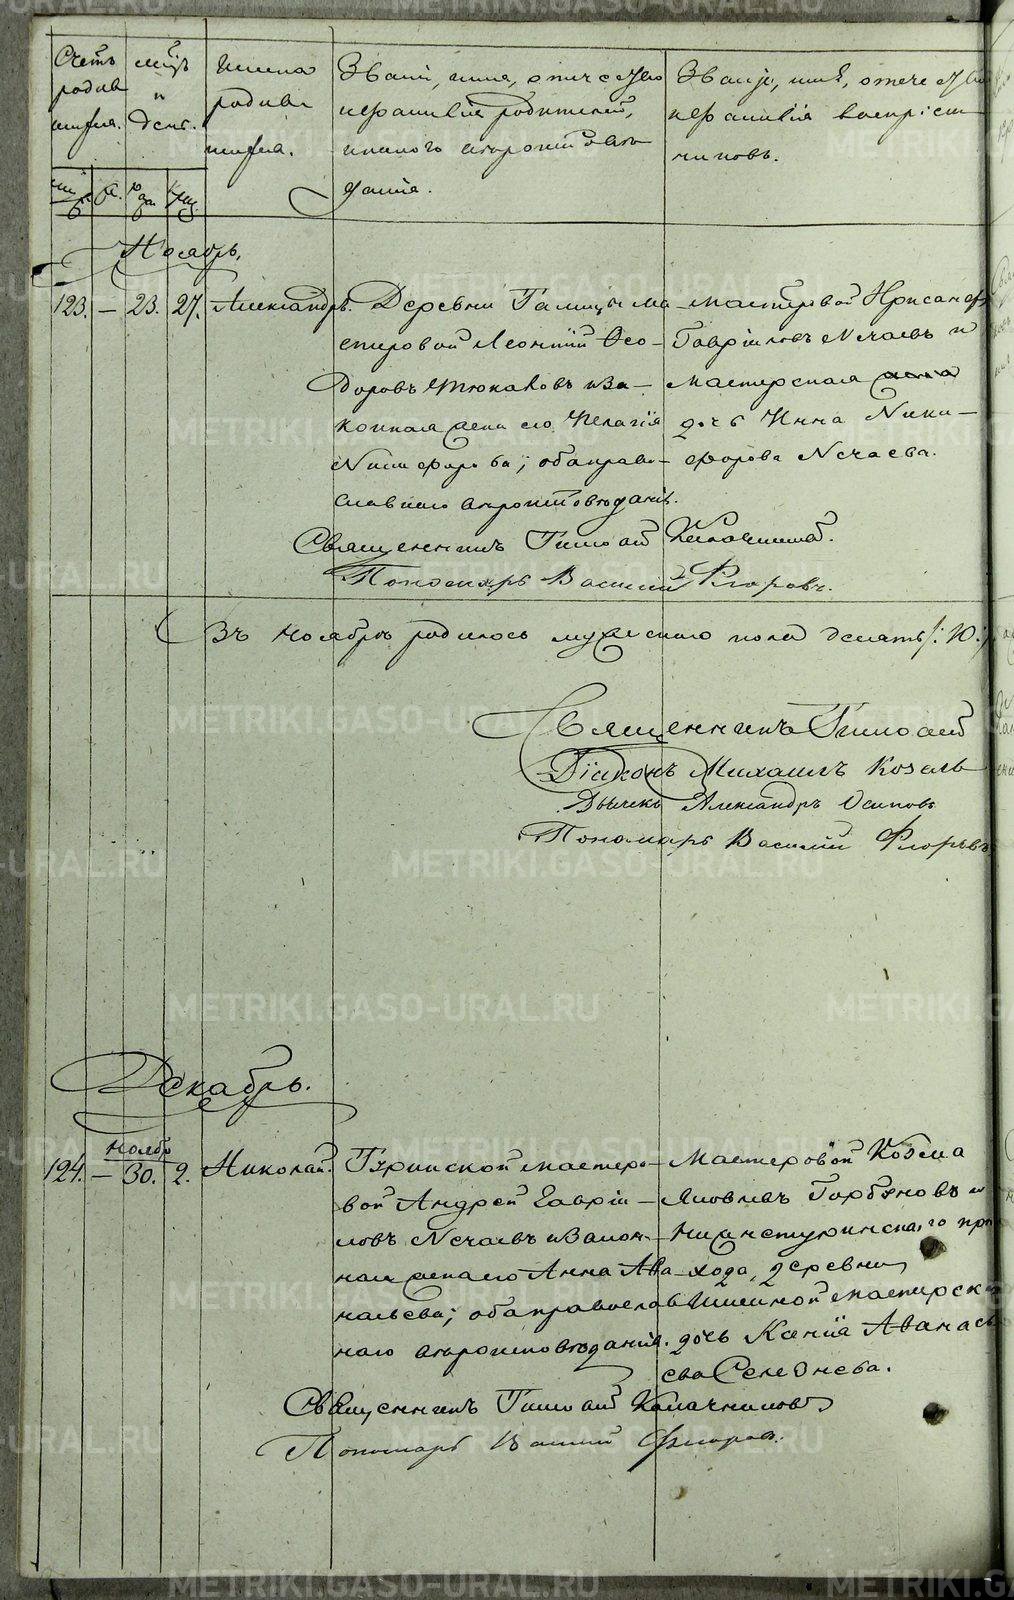 Счетъ родив шихся.
мцъ и день.
Имена родив шихся.
Званіе, имя, отчество
и фамилія родителей,
и какого вѣроисповѣ
данія.
Званіе, имя, отече ство
и фамилія воспріем
никовъ.
Ноябрь.
123. — 23. 27. Александръ. Деревни Галицы ма
стеровой Леонтій Ѳео-
доровъ Стюковъ и за-
конная жена его Пелагія
Никифорова; оба право-
славнаго вѣроисповѣданія.
мастеровой Хрисанфъ
Гавріиловъ Нечаевъ и
мастерская
дочь Анна Ники-
форова Нечаева.
Священникъ Тимоѳей Калачниковъ.
Пономарь Василій Флоровъ.
Въ Ноябрѣ родилось мужескаго пола десять /: 10 :/
Священникъ Тимоѳей
Діаконъ Михаилъ Козель
Дьячекъ Александръ Осиповъ
Пономарь Василій Флоровъ
Декабрь.
124. — Ноябр 30. 2. Николай. Туринской мастеро-
вой Андрей Гавріи-
ловъ Нечаевъ и закон-
ная жена его Анна Ава-
насьева; оба православ
наго вѣроисповѣданія.
Мастеровой Козма
Яковлевъ Горбуновъ и
Нижнетуринскаго при
хода, деревни
Именной мастерск
дочь Ксенія Аѳанась
ева Селезнева.
Священникъ Тимоѳей Калачниковъ
Пономарь Василій Флоровъ.
METRIKI.GASO-URAL.RU